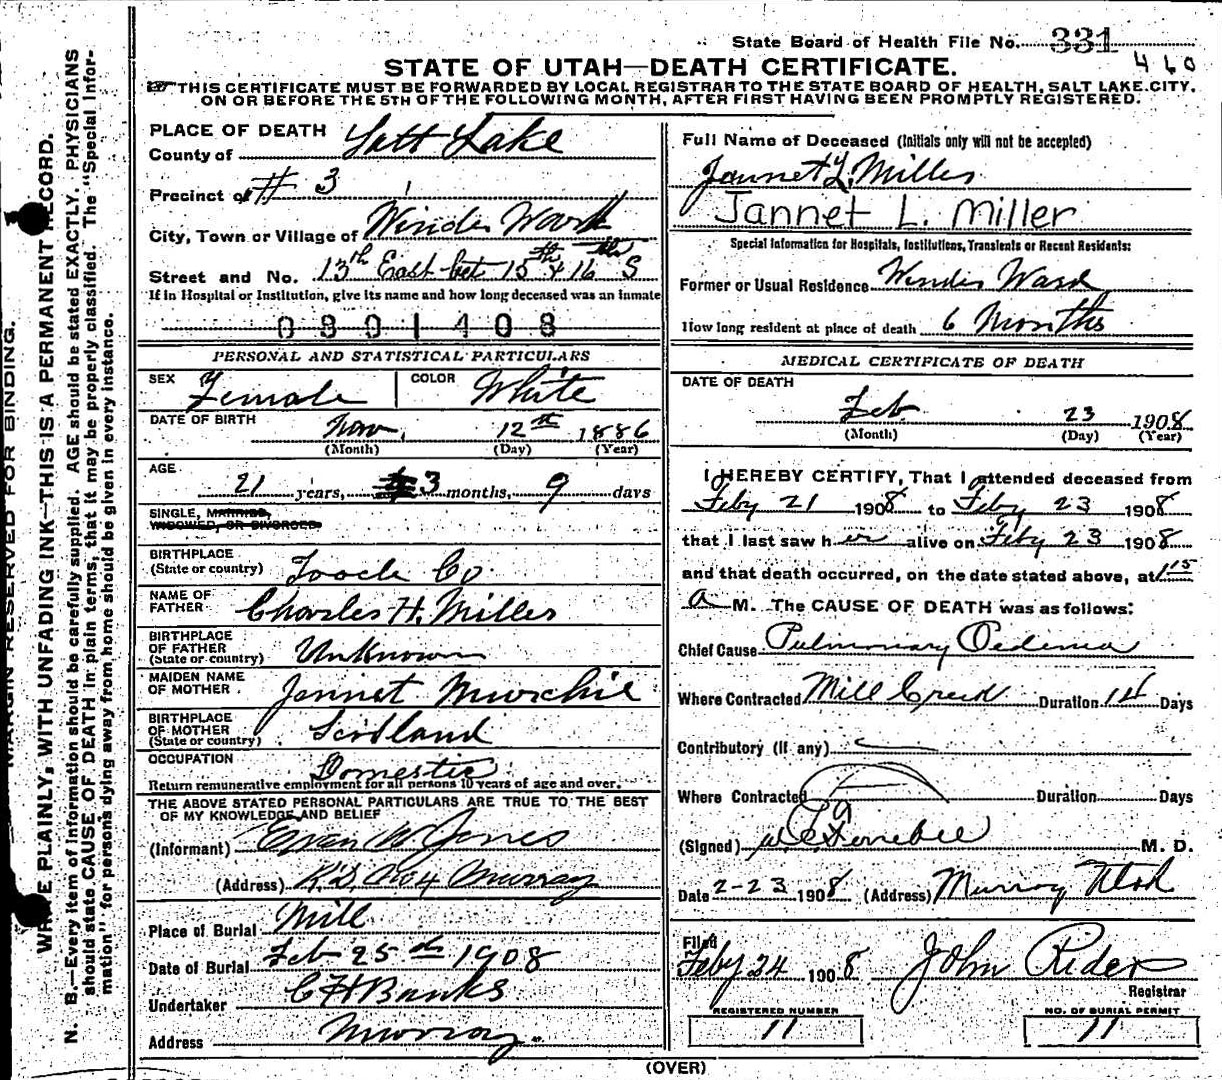 State Board of Health File No. 331
460
STATE OF UTAH—DEATH CERTIFICATE.
THIS CERTIFICATE MUST BE FORWARDED BY LOCAL REGISTRAR TO THE STATE BOARD OF HEALTH, SALT LAKE CITY,
ON OR BEFORE THE 5TH OF THE FOLLOWING MONTH, AFTER FIRST HAVING BEEN PROMPTLY REGISTERED.
MARGIN RESERVED FOR BINDING.
WRITE PLAINLY, WITH UNFADING INK—THIS IS A PERMANENT RECORD.
N. B.—Every item of information should be carefully supplied. AGE should be stated EXACTLY. PHYSICIANS
should state CAUSE OF DEATH in plain terms, that it may be properly classified. The "Special Infor-
mation" for persons dying away from home should be given in every instance.
PLACE OF DEATH
County of Salt Lake
Precinct of # 3
City, Town or Village of Winder Ward
Street and No. 13th East bet 15th & 16th S
If in Hospital or Institution, give its name and how long deceased was an inmate
0801408
PERSONAL AND STATISTICAL PARTICULARS
SEX Female COLOR White
DATE OF BIRTH Nov. 12th 1886
(Month) (Day) (Year)
AGE
21 years, 3 months, 9 days
SINGLE, MARRIED,
WIDOWED, OR DIVORCED
BIRTHPLACE
(State or country) Tooele Co.
NAME OF
FATHER Charles H. Miller
BIRTHPLACE
OF FATHER
(State or country) Unknown
MAIDEN NAME
OF MOTHER Jennet Murchie
BIRTHPLACE
OF MOTHER
(State or country) Scotland
OCCUPATION Domestic
Return remunerative employment for all persons 10 years of age and over.
THE ABOVE STATED PERSONAL PARTICULARS ARE TRUE TO THE BEST
OF MY KNOWLEDGE AND BELIEF
(Informant) Evan W Jones
(Address) R.D. No 4 Murray
Place of Burial Mill
Date of Burial Feb 25th 1908
Undertaker C H Banks
Address Murray
Full Name of Deceased (Initials only will not be accepted)
Jannet L. Miller
Jannet L. Miller
Special Information for Hospitals, Institutions, Transients or Recent Residents:
Former or Usual Residence Winder Ward
How long resident at place of death 6 Months
MEDICAL CERTIFICATE OF DEATH
DATE OF DEATH
Feb 23 1908
(Month) (Day) (Year)
I HEREBY CERTIFY, That I attended deceased from
Feby 21 1908 to Feby 23 1908
that I last saw her alive on Feby 23 1908
and that death occurred, on the date stated above, at 1 15
a M. The CAUSE OF DEATH was as follows:
Chief Cause Pulmonary Oedema
Where Contracted Mill Creek Duration 14 Days
Contributory (if any)
Where Contracted Duration Days
(Signed) Ferrebee M. D.
Date 2-23 1908 (Address) Murray Utah
Filed
Feby 24 1908 John Rider
Registrar
REGISTERED NUMBER
11
NO. OF BURIAL PERMIT
11
(OVER)